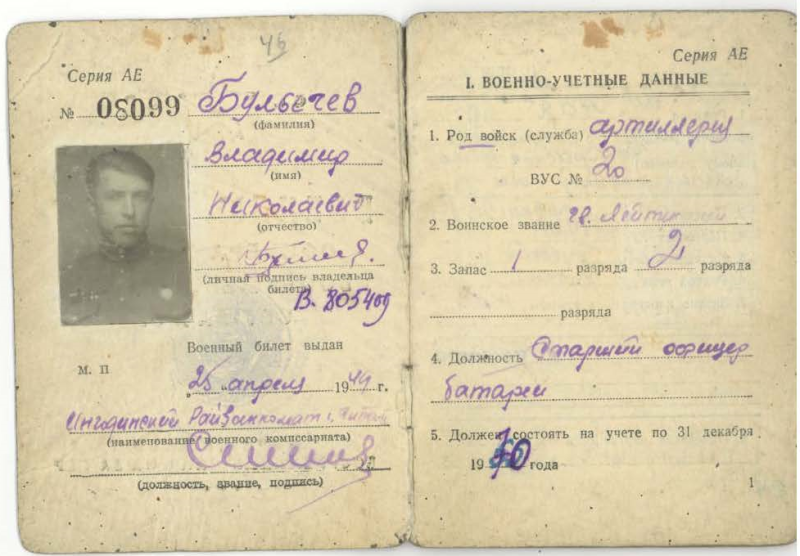 46
Серия АЕ
№ 08099 Булычев
(фамилия)
Владимир
(имя)
Николаевич
(отчество)
(личная подпись владельца
билета)
В. 805409
Военный билет выдан
М. П
„25 апреля 1949 г.
Ингодинский Райвоенкомат г. Читы
(наименование военного комиссариата)
(должность, звание, подпись)
Серия АЕ
I. ВОЕННО-УЧЕТНЫЕ ДАННЫЕ
1. Род войск (служба) артиллерия
ВУС № 20
2. Воинское звание гв. лейтенант
3. Запас 1 разряда 2 разряда
разряда
4. Должность Старший офицер
батареи
5. Должен состоять на учете по 31 декабря
1970 года
1